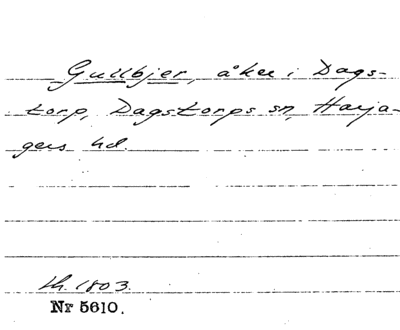 Gullbjer, åker i Dags-
torp, Dagstorps sn, Harja-
gers hd.
lh. 1803.
Nr 5610.